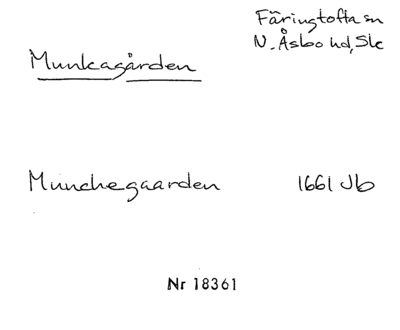 Färingtofta sn
N. Åsbo hd, Sk
Munkagården
Munchegaarden 1661 Jb
Nr 18361